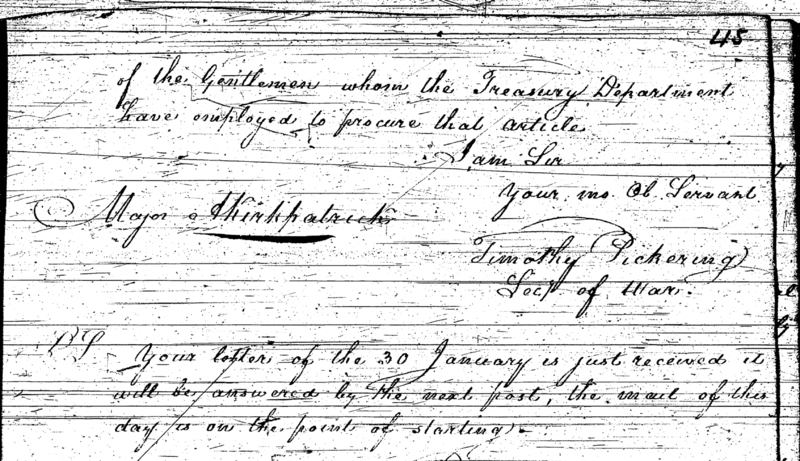 45
of the Gentlemen whom the Treasury Department
have employed to procure that article
I am Sir
Your mo. Ob. Servant
Major Kirkpatrick
Timothy Pickering
Secy of War.
PS Your letter of the 30 January is just received it
will be answered by the next post, the mail of this
day is on the point of starting.